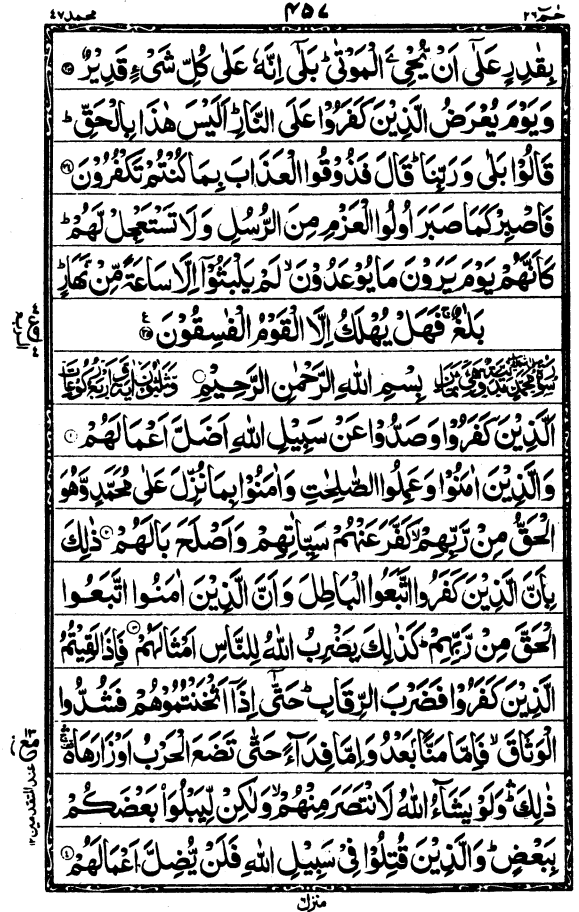 حٰمٓ ٢٦
٤٥٧
محمد ٤٧
بِقٰدِرٍ عَلٰٓى اَنْ يُّحْيِۦَ الْمَوْتٰىؕ بَلٰٓى اِنَّهٗ عَلٰى كُلِّ شَىْءٍ قَدِيْرٌ ۝
وَيَوْمَ يُعْرَضُ الَّذِيْنَ كَفَرُوْا عَلَى النَّارِؕ اَلَيْسَ هٰذَا بِالْحَقِّؕ
قَالُوْا بَلٰى وَرَبِّنَاؕ قَالَ فَذُوْقُوا الْعَذَابَ بِمَا كُنْتُمْ تَكْفُرُوْنَ ۝
فَاصْبِرْ كَمَا صَبَرَ اُولُوا الْعَزْمِ مِنَ الرُّسُلِ وَلَا تَسْتَعْجِلْ لَّهُمْؕ
كَاَنَّهُمْ يَوْمَ يَرَوْنَ مَا يُوْعَدُوْنَۙ لَمْ يَلْبَثُوْٓا اِلَّا سَاعَةً مِّنْ نَّهَارٍؕ
بَلٰغٌۚ فَهَلْ يُهْلَكُ اِلَّا الْقَوْمُ الْفٰسِقُوْنَ ۝
بِسْمِ اللهِ الرَّحْمٰنِ الرَّحِيْمِ
اَلَّذِيْنَ كَفَرُوْا وَصَدُّوْا عَنْ سَبِيْلِ اللهِ اَضَلَّ اَعْمَالَهُمْ ۝
وَالَّذِيْنَ اٰمَنُوْا وَعَمِلُوا الصّٰلِحٰتِ وَاٰمَنُوْا بِمَا نُزِّلَ عَلٰى مُحَمَّدٍ وَّهُوَ
الْحَقُّ مِنْ رَّبِّهِمْۙ كَفَّرَ عَنْهُمْ سَيِّاٰتِهِمْ وَاَصْلَحَ بَالَهُمْ ۝ ذٰلِكَ
بِاَنَّ الَّذِيْنَ كَفَرُوا اتَّبَعُوا الْبَاطِلَ وَاَنَّ الَّذِيْنَ اٰمَنُوا اتَّبَعُوا
الْحَقَّ مِنْ رَّبِّهِمْؕ كَذٰلِكَ يَضْرِبُ اللهُ لِلنَّاسِ اَمْثَالَهُمْ ۝ فَاِذَا لَقِيْتُمُ
الَّذِيْنَ كَفَرُوْا فَضَرْبَ الرِّقَابِؕ حَتّٰٓى اِذَآ اَثْخَنْتُمُوْهُمْ فَشُدُّوا
الْوَثَاقَۙ فَاِمَّا مَنًّۢا بَعْدُ وَاِمَّا فِدَآءً حَتّٰى تَضَعَ الْحَرْبُ اَوْزَارَهَا
ذٰلِكَؕ وَلَوْ يَشَآءُ اللهُ لَانْتَصَرَ مِنْهُمْۙ وَلٰكِنْ لِّيَبْلُوَا۟ بَعْضَكُمْ
بِبَعْضٍؕ وَالَّذِيْنَ قُتِلُوْا فِىْ سَبِيْلِ اللهِ فَلَنْ يُّضِلَّ اَعْمَالَهُمْ ۝
عند المتقدمين ١٢
منزل